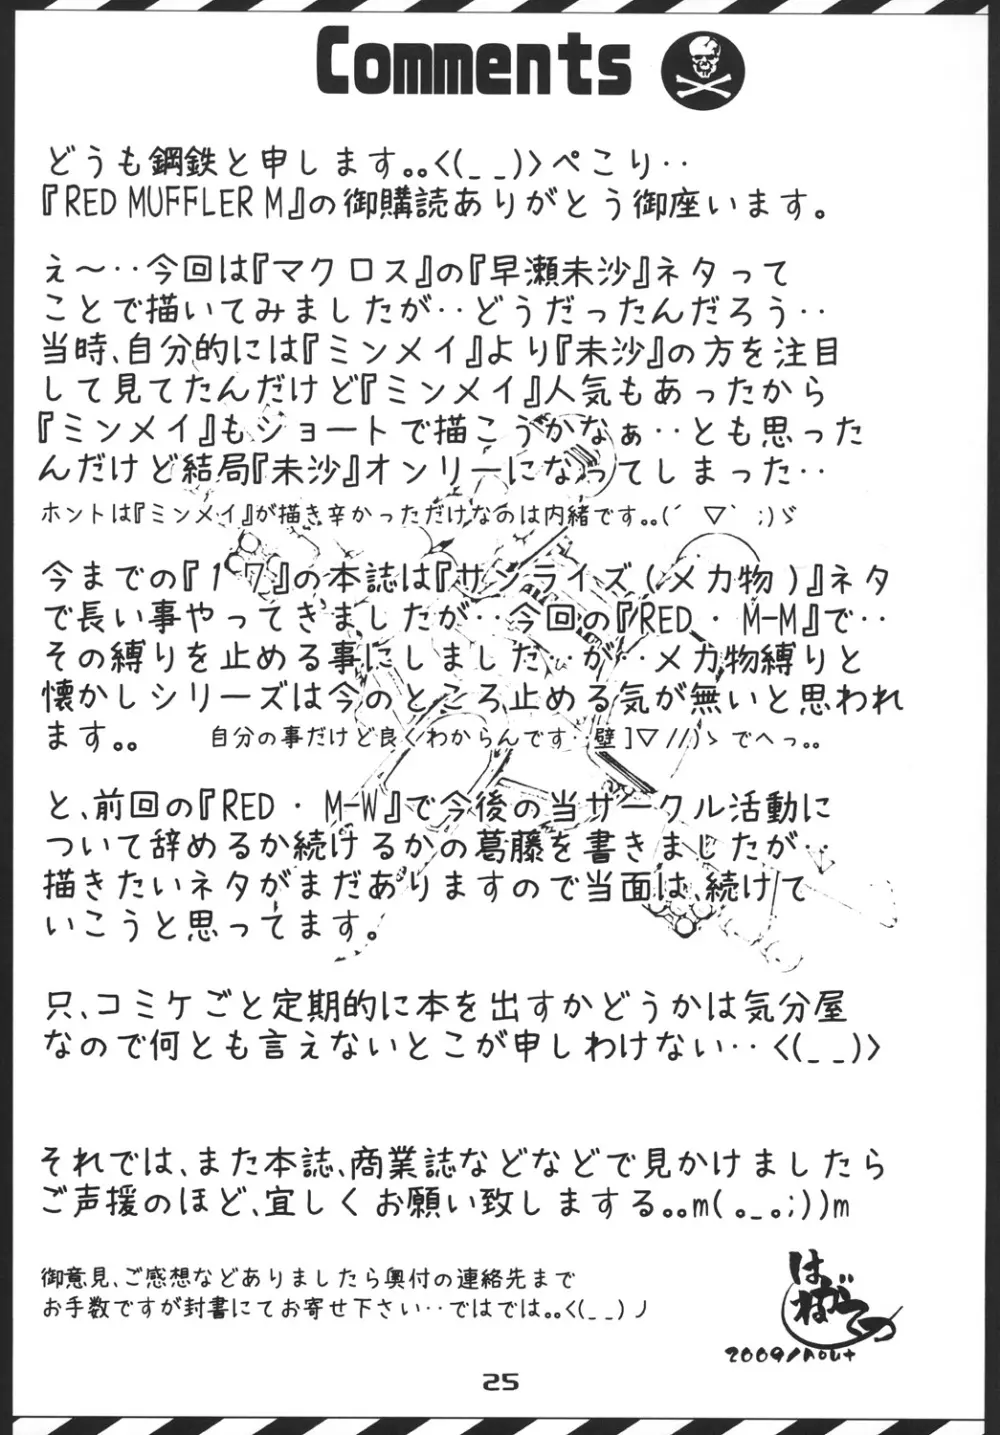 Comments
どうも鋼鉄と申します｡｡<(_ _)>ぺこり‥
『RED MUFFLER M』の御購読ありがとう御座います。
え～‥今回は『マクロス』の『早瀬未沙』ネタって
ことで描いてみましたが‥どうだったんだろう‥
当時､自分的には『ミンメイ』より『未沙』の方を注目
して見てたんだけど『ミンメイ』人気もあったから
『ミンメイ』もショートで描こうかなぁ‥とも思った
んだけど結局『未沙』オンリーになってしまった‥
ホントは『ミンメイ』が描き辛かっただけなのは内緒です｡｡(´▽｀;)ゞ
今までの『17』の本誌は『サンライズ(メカ物)』ネタ
で長い事やってきましたが‥今回の『RED・M-M』で‥
その縛りを止める事にしました‥が‥メカ物縛りと
懐かしシリーズは今のところ止める気が無いと思われ
ます｡｡ 自分の事だけど良くわからんです‥壁]▽//)ゝでへっ｡｡
と､前回の『RED・M-W』で今後の当サークル活動に
ついて辞めるか続けるかの葛藤を書きましたが‥
描きたいネタがまだありますので当面は､続けて
いこうと思ってます。
只､コミケごと定期的に本を出すかどうかは気分屋
なので何とも言えないとこが申しわけない‥<(_ _)>
それでは､また本誌､商業誌などなどで見かけましたら
ご声援のほど､宜しくお願い致しまする｡｡m(｡_｡;))m
御意見､ご感想などありましたら奥付の連絡先まで
お手数ですが封書にてお寄せ下さい‥ではでは｡｡<(_ _)ノ
2009/
25